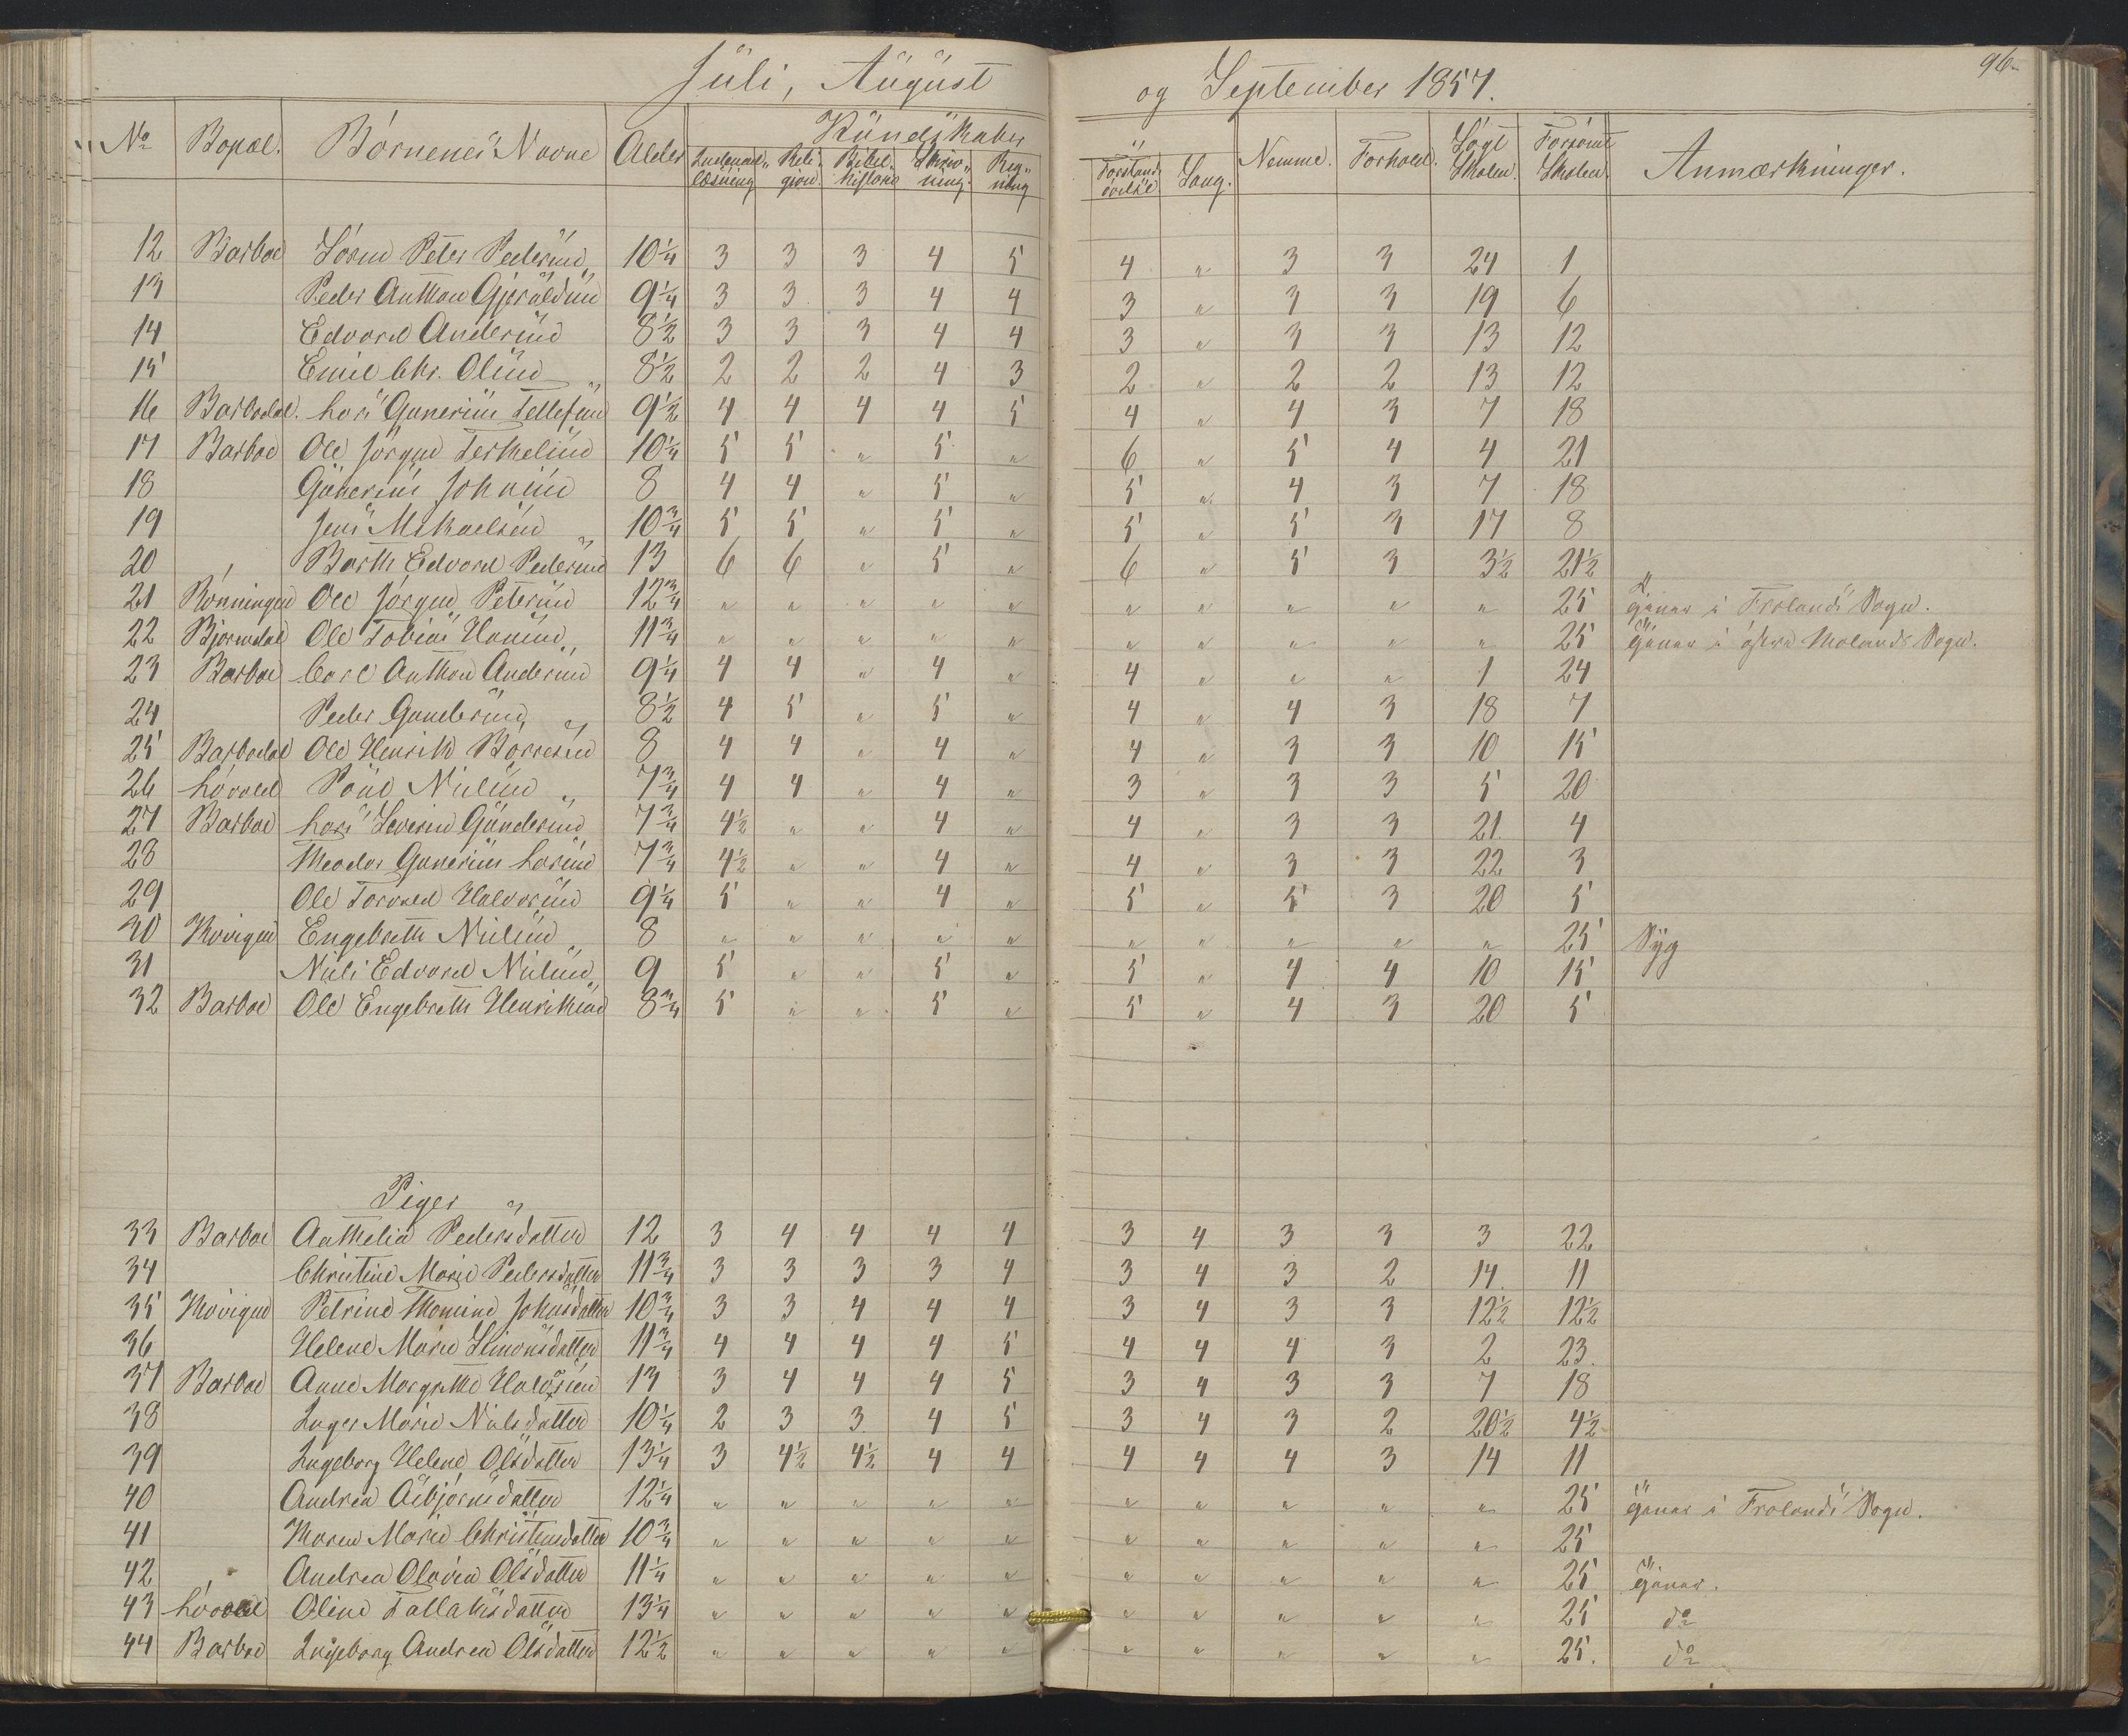 Juli, August og September 1857. 96
No Bopæl. Børnenes Navne Alder Kundskaber Nemme. Forhold. Søgt Skolen. Forsømt Skolen. Anmærkninger.
Indenadlæsning Religion. Bibelhistorie Skrivning. Regning Forstandsøvelse Sang.
12 Barboe Søren Peter Pedersen 10 1/4 3 3 3 4 5 4 " 3 3 24 1
13 Peder Anthon Gjeruldsen 9 1/4 3 3 3 4 4 3 " 3 3 19 6
14 Edvard Andersen 8 1/2 3 3 3 4 4 3 " 3 3 13 12
15 Emil Chr. Olsen 8 1/2 2 2 2 4 3 2 " 2 2 13 12
16 Barbodal. Lars Gunerius Tellefsen 9 1/2 4 4 4 4 5 4 " 4 3 7 18
17 Barboe Ole Jørgen Terkelsen 10 1/4 5 5 " 5 " 6 " 5 4 4 21
18 Gunerius Johnsen 8 4 4 " 5 " 5 " 4 3 7 18
19 Jens Mikaelsen 10 3/4 5 5 " 5 " 5 " 5 3 17 8
20 Barth Edvard Pedersen 13 6 6 " 5 " 6 " 5 3 3 1/2 21 1/2
21 Rønningen Ole Jørgen Petersen 12 3/4 " " " " " " " " " " 25 tjener i Frolands Sogn.
22 Bjørndal Ole Tobias Hansen 11 3/4 " " " " " " " " " " 25 tjener i østre Molands Sogn.
23 Barboe Carl Anthon Andersen 9 1/4 4 4 " 4 " 4 " " " 1 24
24 Peder Gundersen 8 1/2 4 5 " 5 " 4 " 4 3 18 7
25 Barbodal Ole Henrik Børresen 8 4 4 " 4 " 4 " 3 3 10 15
26 Løvold Poul Nielsen 7 3/4 4 4 " 4 " 3 " 3 3 5 20
27 Barboe Lars Severin Gundersen 7 3/4 4 1/2 " " 4 " 4 " 3 3 21 4
28 Theodor Gunerius Larsen 7 3/4 4 1/2 " " 4 " 4 " 3 3 22 3
29 Ole Torvald Halvorsen 9 1/4 5 " " 4 " 5 " 5 3 20 5
30 Engebreth Nielsen 8 " " " " " " " " " " 25 Syg
31 Niels Edvard Nielsen 9 5 " " 5 " 5 " 4 4 10 15
32 Barboe Ole Engebreth Henriksen 8 3/4 5 " " 5 " 5 " 4 3 20 5
Piger
33 Barboe Anthelia Pedersdatter 12 3 4 4 4 4 3 4 3 3 3 22
34 Christine Marie Pedersdatter 11 3/4 3 3 3 3 4 3 4 3 2 14 11
35 Petrine Thomine Johnsdatter 10 3/4 3 3 4 4 4 3 4 3 3 12 1/2 12 1/2
36 Helene Marie Simonsdatter 11 3/4 4 4 4 4 5 4 4 4 3 2 23
37 Barboe Anne Margrethe Halvorsen 13 3 4 4 4 5 3 4 3 3 7 18
38 Inger Marie Nielsdatter 10 1/4 2 3 3 4 5 3 4 3 2 20 1/2 4 1/2
39 Ingeborg Helene Olsdatter 13 1/4 3 4 1/2 4 1/2 4 4 4 4 4 3 14 11
40 Andrea Asbjørnsdatter 12 1/4 " " " " " " " " " " 25 tjener i Frolands Sogn.
41 Maren Marie Christensdatter 10 3/4 " " " " " " " " " " 25
42 Andrea Olovia Olsdatter 11 1/4 " " " " " " " " " " 25 tjener.
43 Løvold Oline Tallaksdatter 13 1/4 " " " " " " " " " " 25 do
44 Barboe Ingeborg Andrea Olsdatter 12 1/2 " " " " " " " " " " 25. do